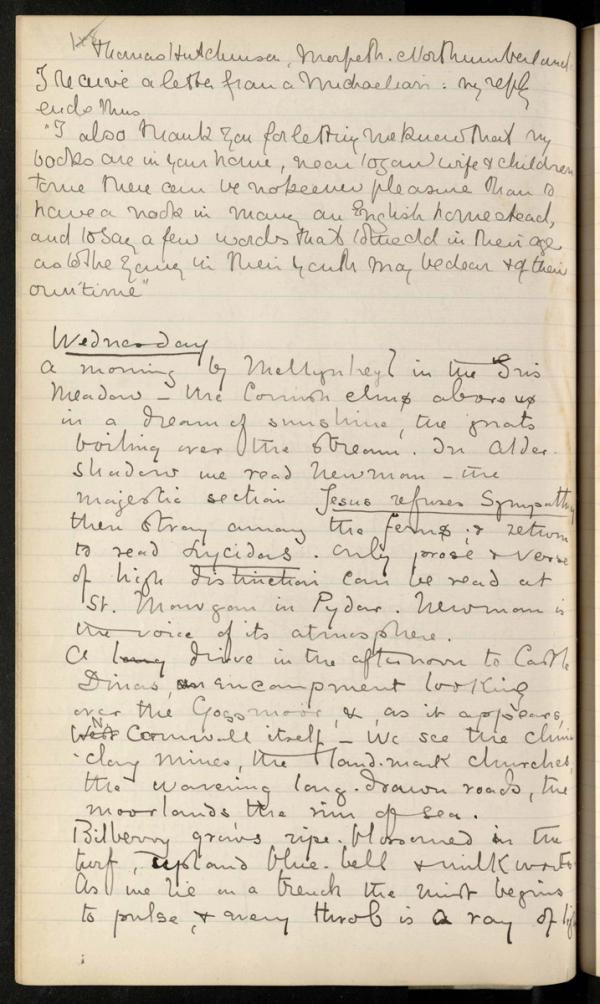 Thomas Hutchinson, Morpeth. Northumberland.
I receive a letter from a Michaelian: my reply
ends thus
"I also thank you for letting me know that my
books are in your home, near to your wife & children
to me there can be no keener pleasure than to
have a nook in many an English homestead,
and to say a few words that to the old in their age
as to the young in their youth may be dear & of their
own time"
Wednesday
A morning by Mellynheyl in the Iris
Meadow – the Cornish elms above us
in a dream of sunshine, the gnats
boiling over the stream. In Alder-
shadow we read Newman – the
majestic section Jesus refuses Sympathy
then stray among the ferns, & return
to read Lycidas. Only prose & verse
of high distinction can be read at
St. Mawgan in Pydar. Newman is
the voice of its atmosphere.
A long drive in the afternoon to Castle
Dinas, an encampment looking
over the Gossmoor, &, as it appears,
Cornwall itself – We see the china
-clay mines, the land-mark churches,
the wavering long-drawn roads, the
moorlands the rim of sea.
Bilberry grows ripe-blossomed in the
turf, upland blue-bell & milkworts
As we lie in a trench the mist begins
to pulse, & every throb is a ray of